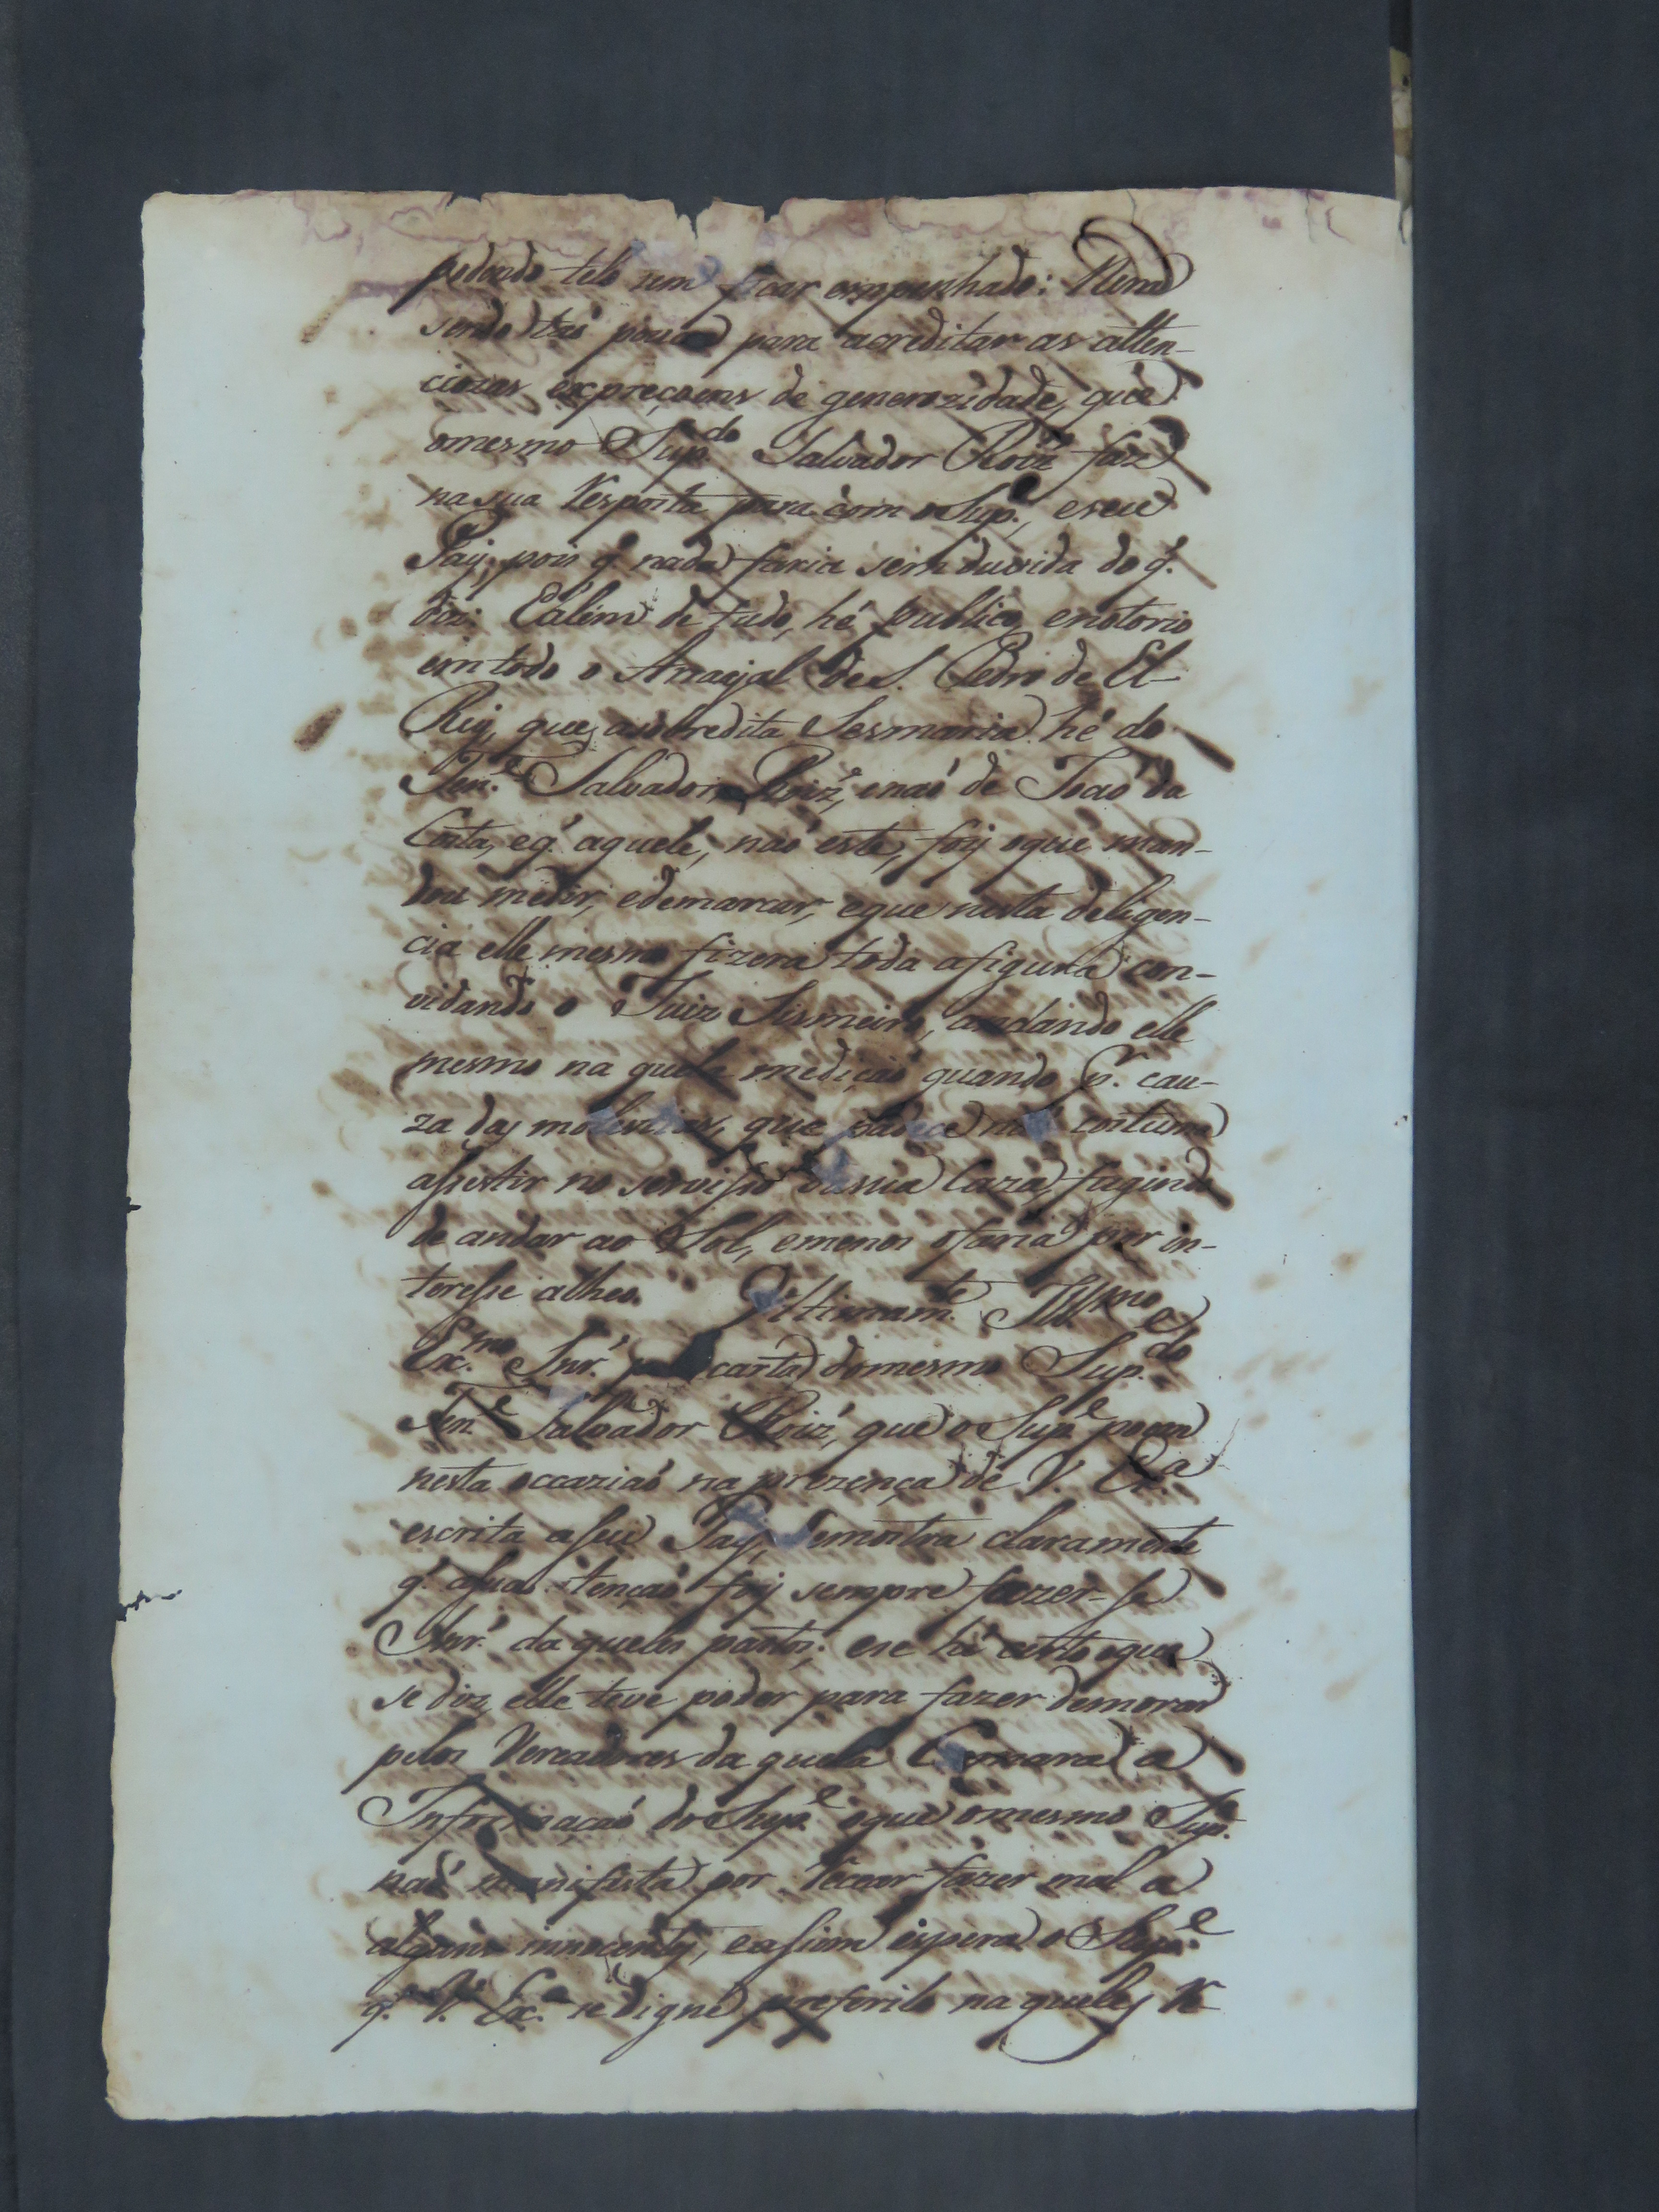 podendo telo sem ficar empenhado: Nem
sendo taó pouco para acreditar as atten-
ciozas expreçoens de generozidade, que
omesmo Sup.do Salvador Roiz' faz
na sua Resposta para com o Sup.e, eseu
Pay, pois q' nada faria sem duvida do q.'
diz: Ealém de tudo, hé publico, enotorio
em todo o Arrayal de S. Pedro de El-
Rey, que asobredita Sesmaria hé do
Ten.e Salvador Roiz', enaó de Joaó da
Costa, eq' aquele, naó este, foy oque man-
dou medir, edemarcar, eque nesta deligen-
cia elle mesmo fizera toda afigura con-
vidando o Juiz Sismeiro, andando elle
mesmo na quela mediçaó quando p.r cau-
za das molestias, que padece naó costuma
assistir no servisso da sua Caza, fugindo
de andar ao Sol, emenos ofaria por in-
teresse alheo. Ultimam.te Ill.mo e
Ex.mo Snr.' pela carta domesmo Sup.do
Ten.e Salvador Roiz', que o Sup.e poem
nesta occaziaó na prezença de V. Ex.a
escrita aseu Pay, demostra claramente
q' asua tençaó foy sempre fazer-se
Snr.' da queles pastos; ese hé certo oque
se diz, elle teve poder para fazer demorar
pelos Vereadores da quela Camara a
Informaçaó do Sup.e oque omesmo Sup.e
naó manifesta por recear fazer mal a
algum innocente, eassim espera o Sup.e
q.' V. Ex.a se digne preferilo na queles R